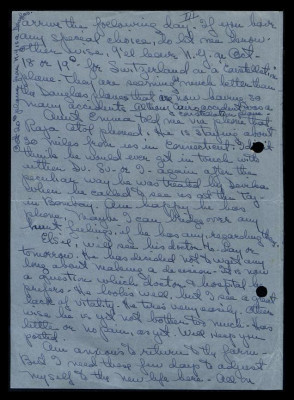 III
arrive the following day. If you have
any special choice, do let me know.
other wise, I'll leave N.Y. on Oct.
18 or 19th for Switzerland on a Constellation
plane. They are running much better than
the Douglas planes that are now having so
many accidents.
Aunt Emma told me via phone that
Raja
phoned. He is staying about
30 miles from us in Connecticut. I didn't
think he would ever get in touch with
either Dr. Sr. or I again after the
peculiar way he was treated by
when he called to see us off the day
in Bombay. Am happy he has
phoned, maybe I can bridge over any
hurt feelings, if he has any, regarding this.
will see his doctor to-day or
tomorrow. He has decided not to wait any
long about making a decision. It is now
a question which doctor & hospital he
prefers. He looks well, but I see a great
lack of vitality. He tires very easily. Other
wise he is yet not bothered too much. Has
little or no pain, as yet. Will keep you
posted.
Am anxious to return to the farm.
But I need these few days to adjust
myself to the new life here. All in